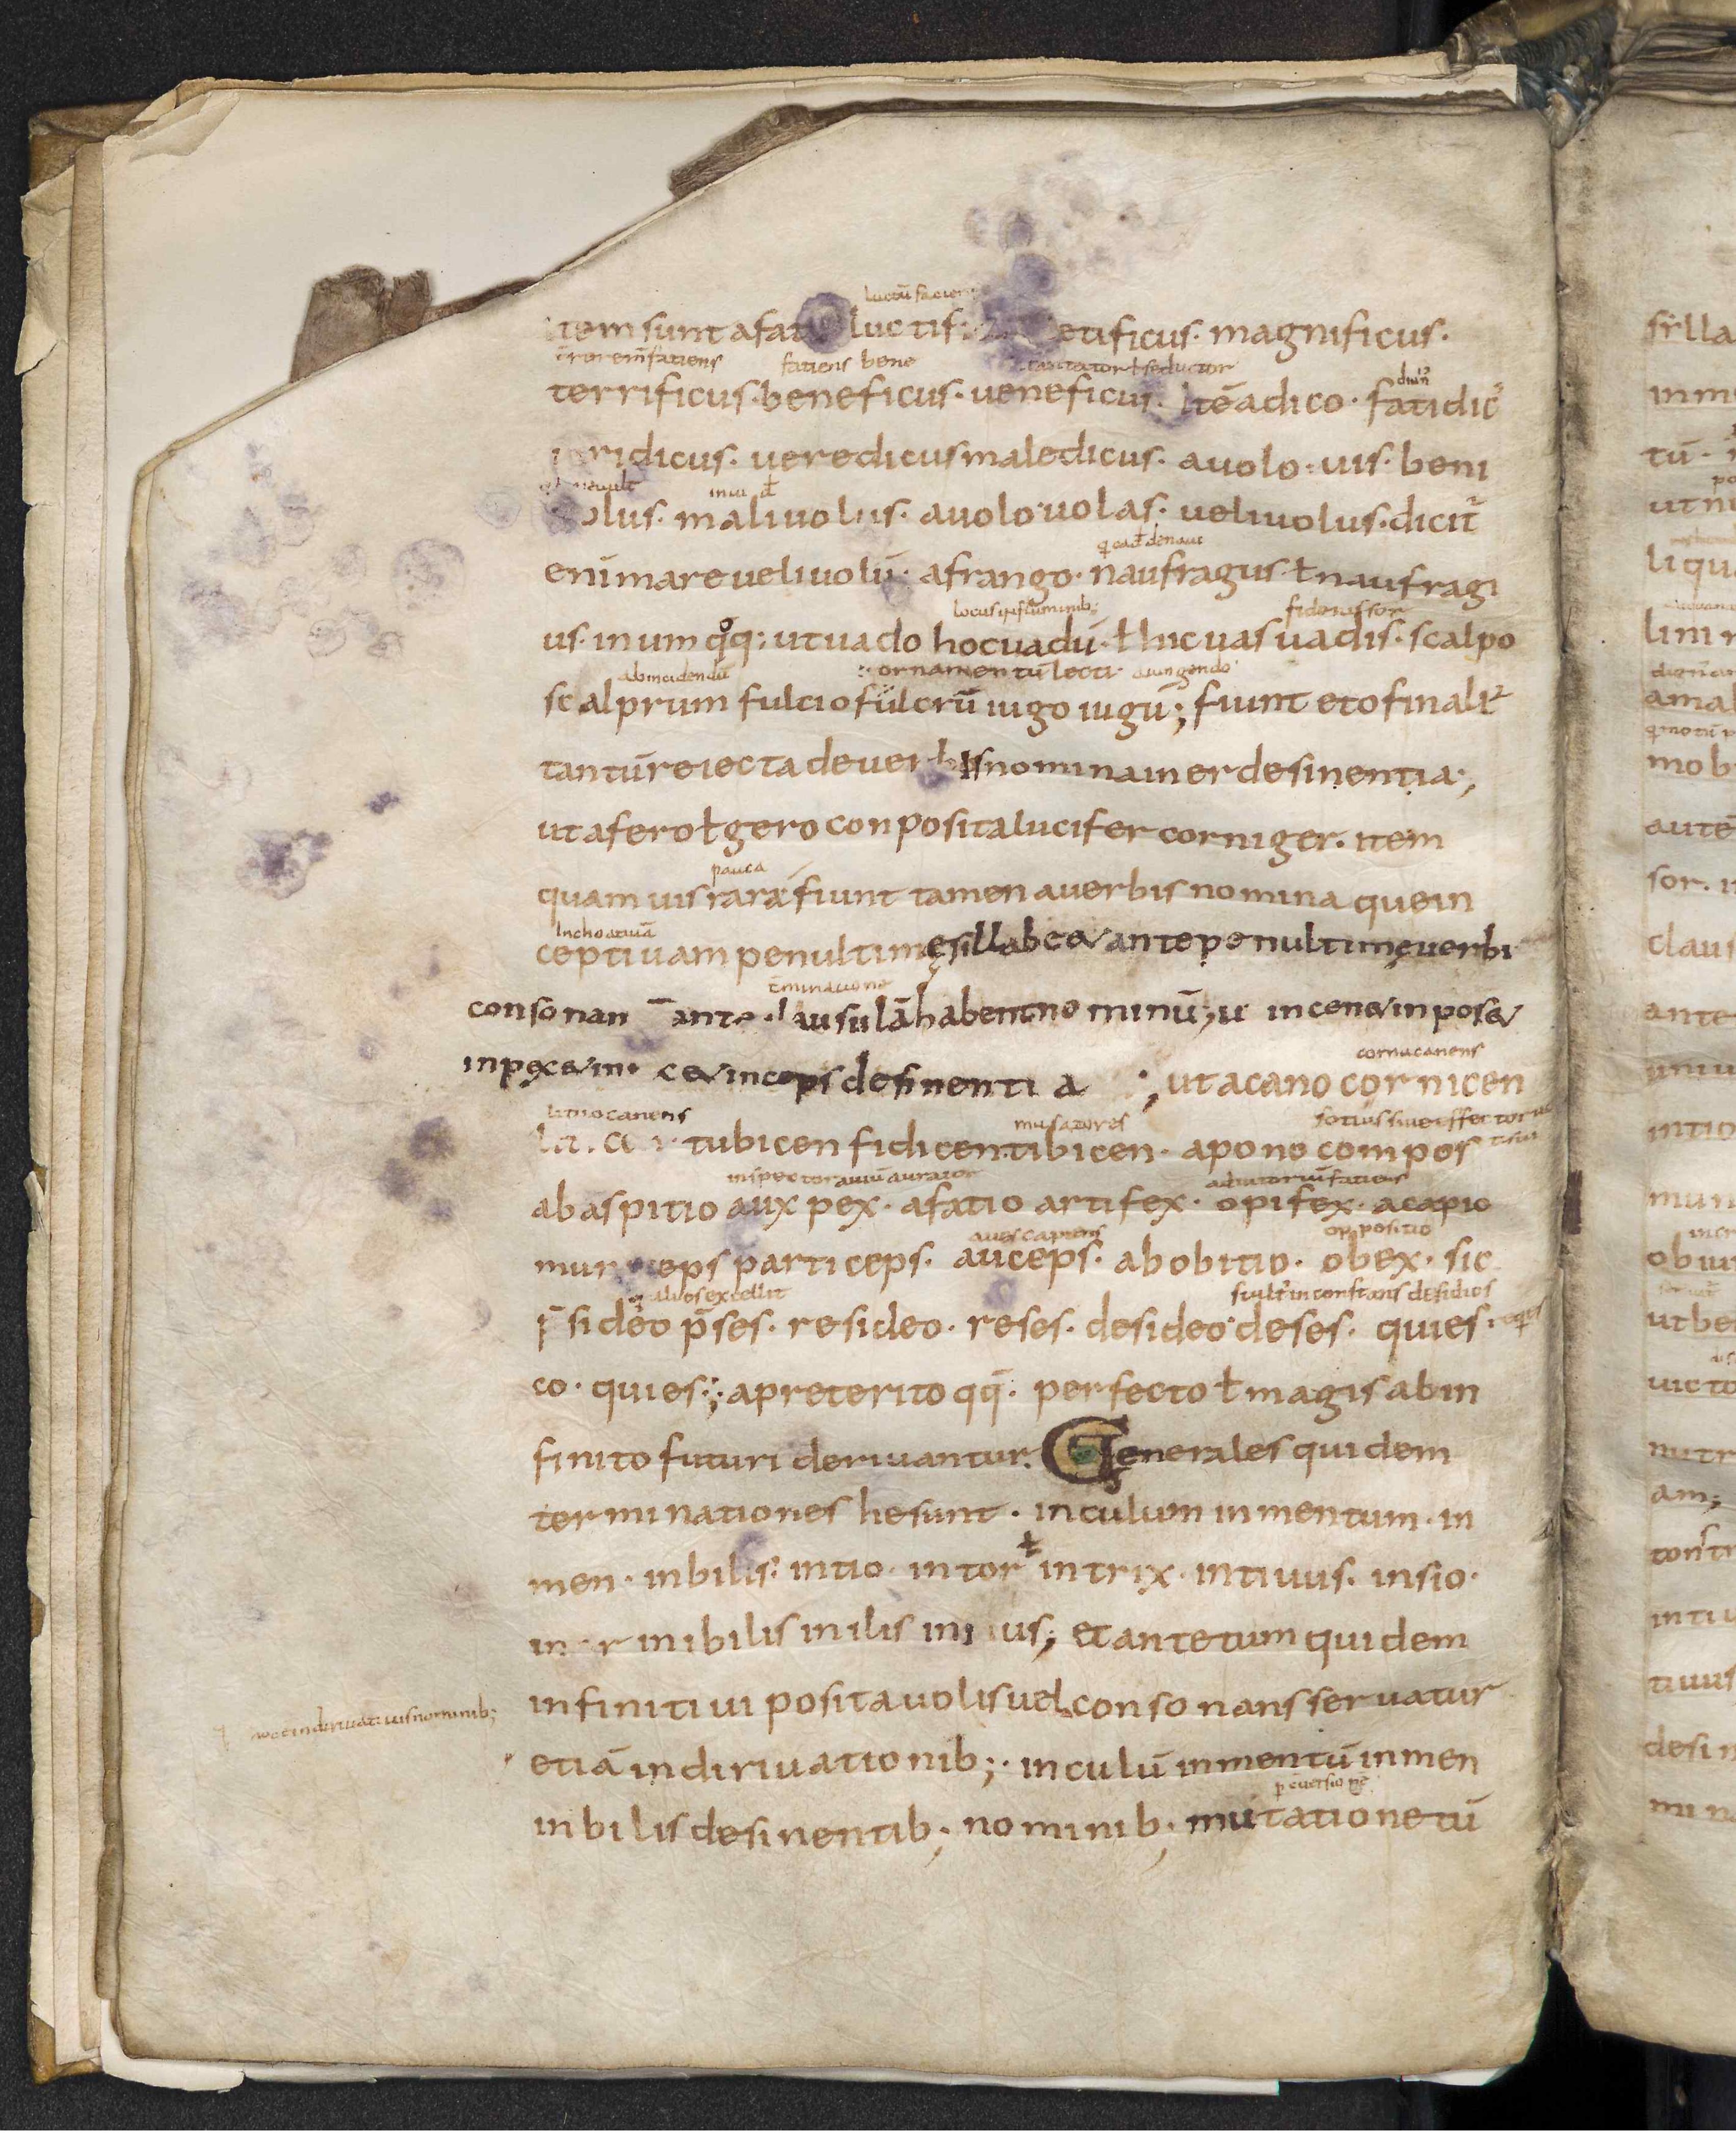 luctū faciens
item sunt a fatio luctif etificus. magnificus.
fatiens bene
terrificus. beneficus. ueneficus. Itē a dico. fatidicꝰ
ridicus. ueredicus maledicus. a uolo. uis. beni
olus. maliuolus. a uolo uolas. ueliuolus. dicit᷑
enī mare ueliuolū. a frango. naufragus ł naufragi
locus in fluminib;
us. in um qͦq: ut uado hoc uadū. ł hic uas uadis. scalpo
ab incidendū ornamentū lecti a iungendo
scalprum fulcio fulcrū iugo iugū; fiunt et o finali
tantū reiecta de uerbis nomina in er desinentia;
ut a fero ł gero conposita lucifer corniger. item
pauca
quamuis rara fiunt tamen a uerbis nomina que in
Inchoatiuā
ceptiuam penultimę sillabę & antepenultimę uerbi
consonan ante clausulā habent nominū; u in cen & in pos &
in pex & in ce & in ceps desinentia; ut a cano cornicen
cornu canens
lituo canens
tubicen fidicen tibicen. a pono compos
inspector auiū
ab aspitio auxpex. a fatio artifex. opifex. a capio
aues capiens oppositio
municeps particeps. auceps. ab obitio. obex. sic
alios excellit
p̄sideo p̄ses. resideo. reses. desideo deses. quies
co. quies; a preterito qq̄. perfecto ł magis ab in
finito futuri deriuantur. Generales quidem
terminationes he sunt. in culum in mentum. in
men. in bilis. in tio. in tor ł in trix. in tiuus. in sio.
in or in ibilis in ilis in us; et ante tum quidem
infinitiui posita uolis uel consonans seruatur
etiā in diriuationib; in culū in mentū in men
in bilis desinentib; nominib; mutatione tū